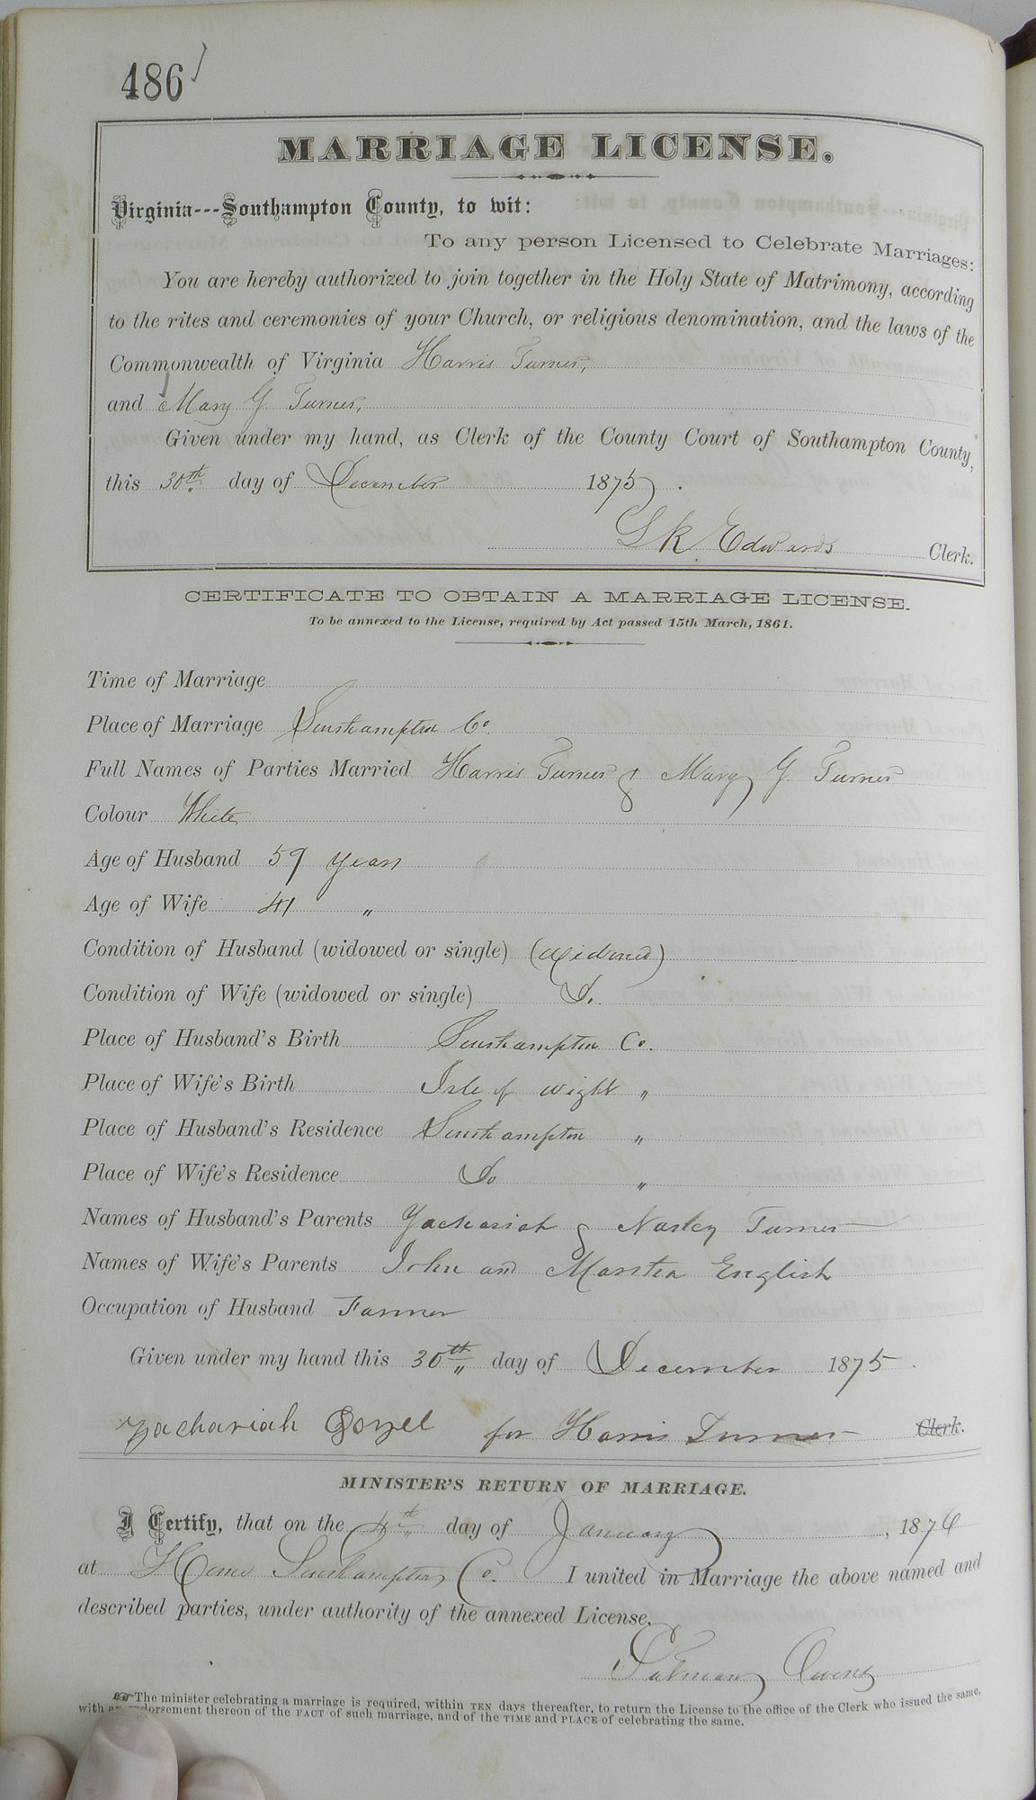 486
MARRIAGE LICENSE.
Virginia---Southampton County, to wit:
To any person Licensed to Celebrate Marriages:
You are hereby authorized to join together in the Holy State of Matrimony, according
to the rites and ceremonies of your Church, or religious denomination, and the laws of the
Commonwealth of Virginia Harris Turner,
and Mary G. Turner,
Given under my hand, as Clerk of the County Court of Southampton County,
this 30th day of December 1875.
L R Edwards Clerk.
CERTIFICATE TO OBTAIN A MARRIAGE LICENSE.
To be annexed to the License, required by Act passed 15th March, 1861.
Time of Marriage
Place of Marriage Southampton Co.
Full Names of Parties Married Harris Turner & Mary G. Turner
Colour White
Age of Husband 59 years
Age of Wife 41 "
Condition of Husband (widowed or single) (Widowed)
Condition of Wife (widowed or single) Do.
Place of Husband's Birth Southampton Co.
Place of Wife's Birth Isle of Wight "
Place of Husband's Residence Southampton "
Place of Wife's Residence Do "
Names of Husband's Parents Zachariah & Turner
Names of Wife's Parents John and Martha English
Occupation of Husband Farmer
Given under my hand this 30th day of December 1875.
Zachariah for Harris Turner Clerk.
MINISTER'S RETURN OF MARRIAGE.
I Certify, that on the 4th day of January, 1876
at Home Southampton Co. I united in Marriage the above named and
described parties, under authority of the annexed License.
Putnam Owens
The minister celebrating a marriage is required, within TEN days thereafter, to return the License to the office of the Clerk who issued the same,
with an endorsement thereon of the FACT of such marriage, and of the TIME and PLACE of celebrating the same.